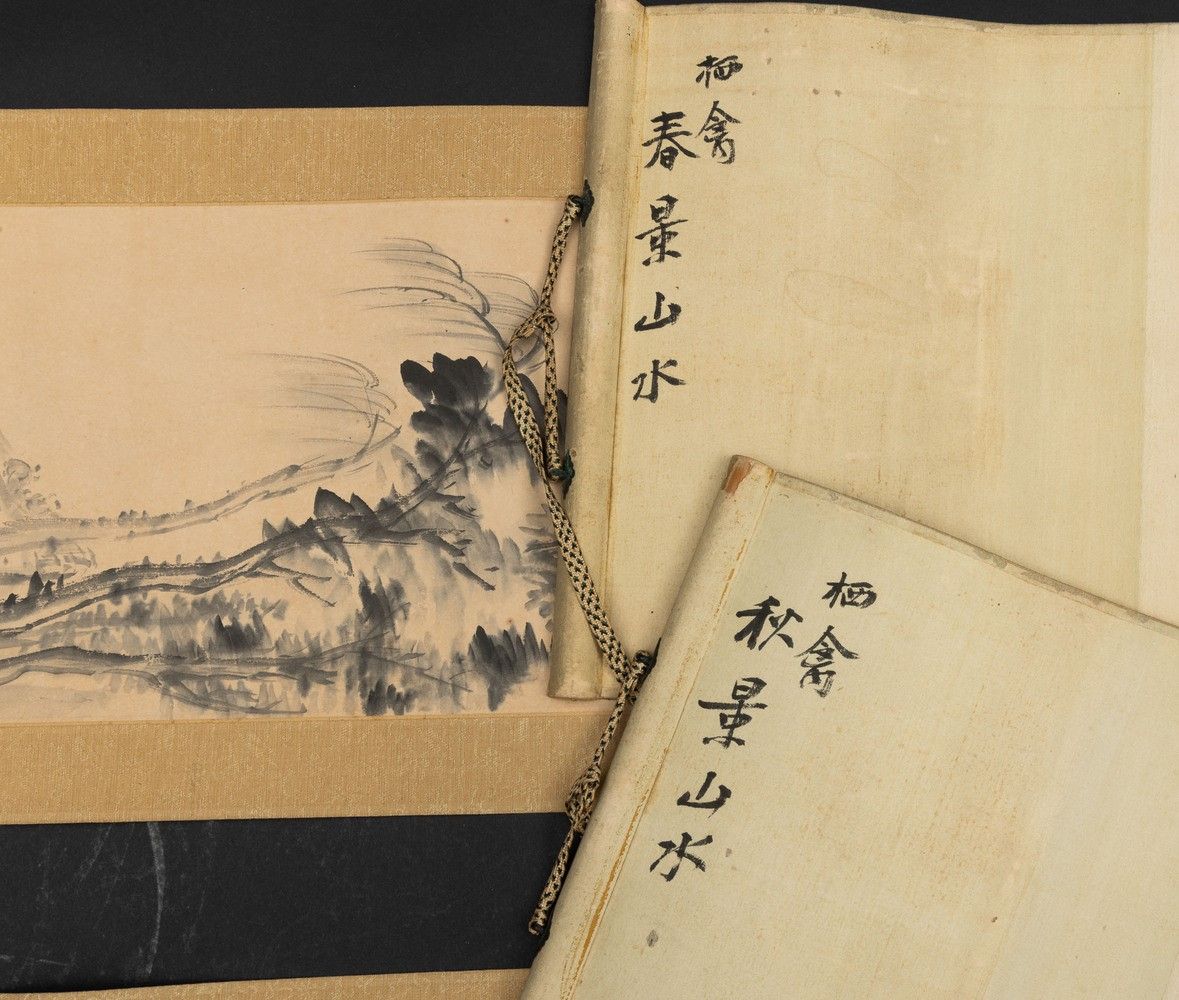 栖禽
春景山水
栖禽
秋景山水